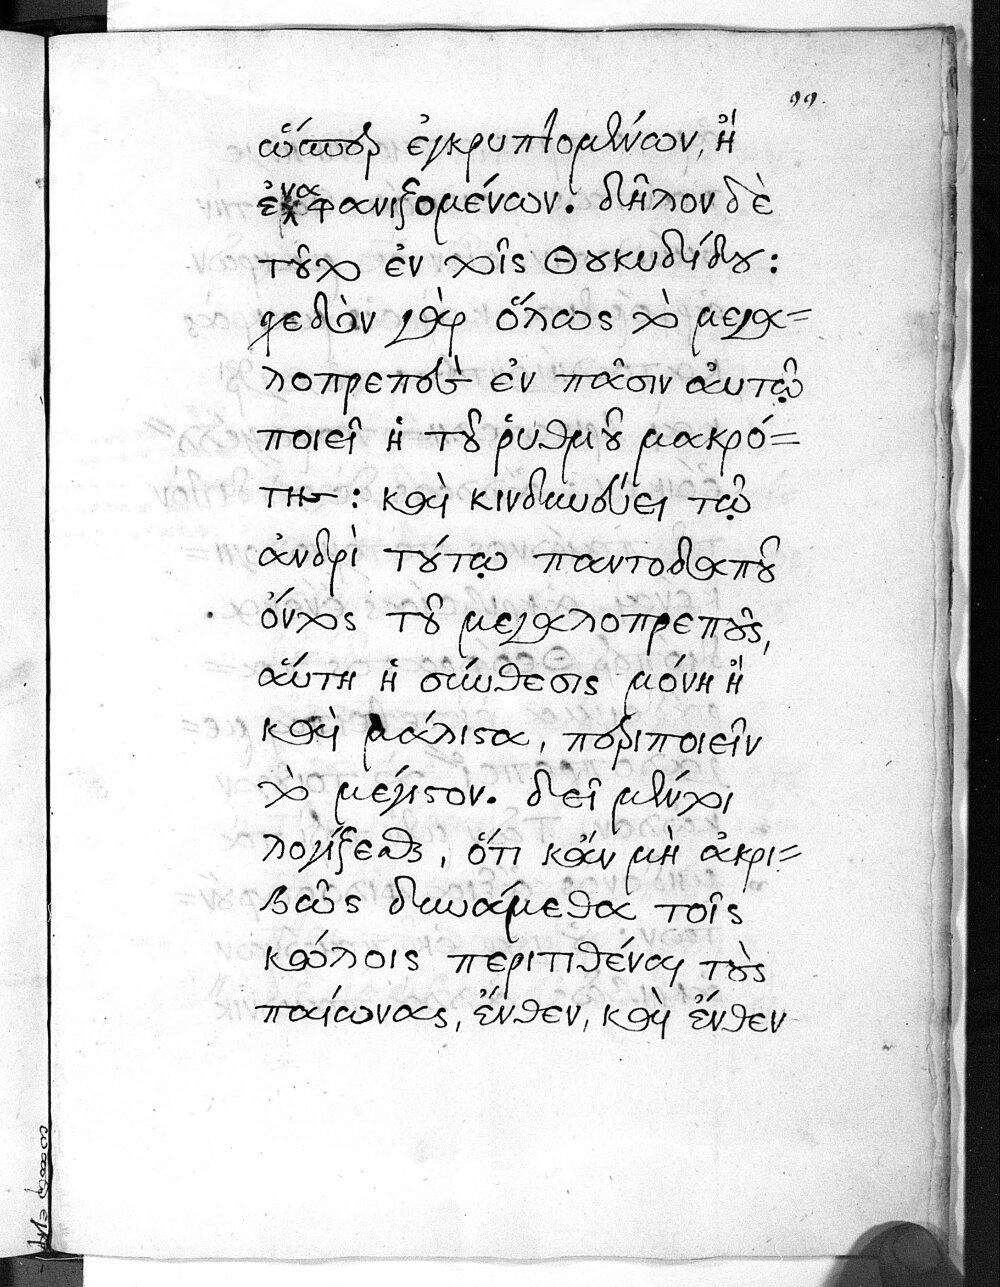 99.
ὥσπερ ἐγκρυπτομένων, ἢ
ἐναφανιζομένων. δῆλον δὲ
τοῦτο ἐν τοῖς Θουκυδίδου:
σχεδὸν γὰρ ὅλως τὸ μεγα=
λοπρεπὲς ἐν πᾶσιν αὐτῷ
ποιεῖ ἡ τοῦ ῥυθμοῦ μακρό=
της: καὶ κινδυνεύει τῷ
ἀνδρὶ τούτῳ παντοδαποῦ
ὄντος τοῦ μεγαλοπρεποῦς,
αὕτη ἡ σύνθεσις μόνη ἢ
καὶ μάλιστα, περιποιεῖν
τὸ μέγιστον. δεῖ μέντοι
λογίζεσθαι, ὅτι κἂν μὴ ἀκρι=
βῶς δυνάμεθα τοῖς
κώλοις περιτιθέναι τοὺς
παίωνας, ἔνθεν, καὶ ἔνθεν